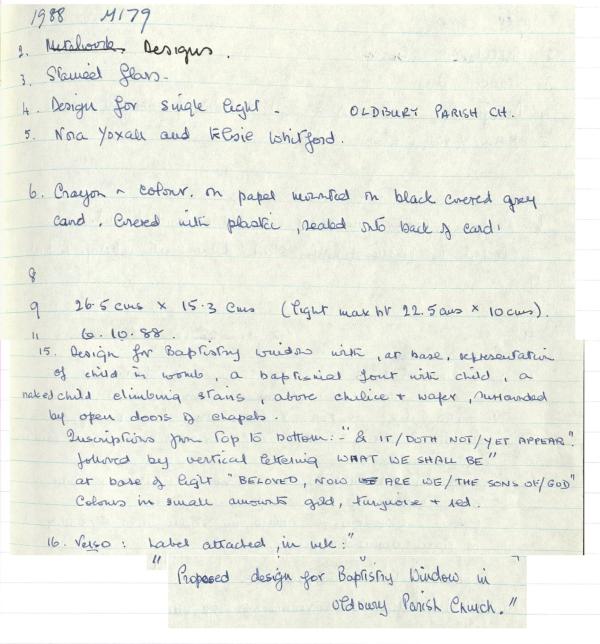 1988 M179
2. Metalwork Designs.
3. Stained Glass.
4. Design for single light - OLDBURY PARISH CH.
5. Nora Yoxall and Elsie Whitford.
6. Crayon colour. on paper mounted on black covered grey
card. Covered with plastic, sealed into back of card.
8
9 26.5 cms × 15.3 cms (light max ht 22.5 cms × 10 cms).
11 6.10.88.
15. Design for Baptistry window with, at base, representation
of child in womb, a baptismal font with child, a
naked child climbing stairs, above chalice + wafer, surrounded
by open doors of chapels.
Inscriptions from top to bottom:- "& IT/DOTH NOT/YET APPEAR".
followed by vertical lettering WHAT WE SHALL BE"
at base of light "BELOVED, NOW ARE WE/THE SONS OF/GOD"
Colours in small amounts gold, turquoise + red.
16. Verso: Label attached, in ink:"
" Proposed design for Baptistry Window in
Oldbury Parish Church."